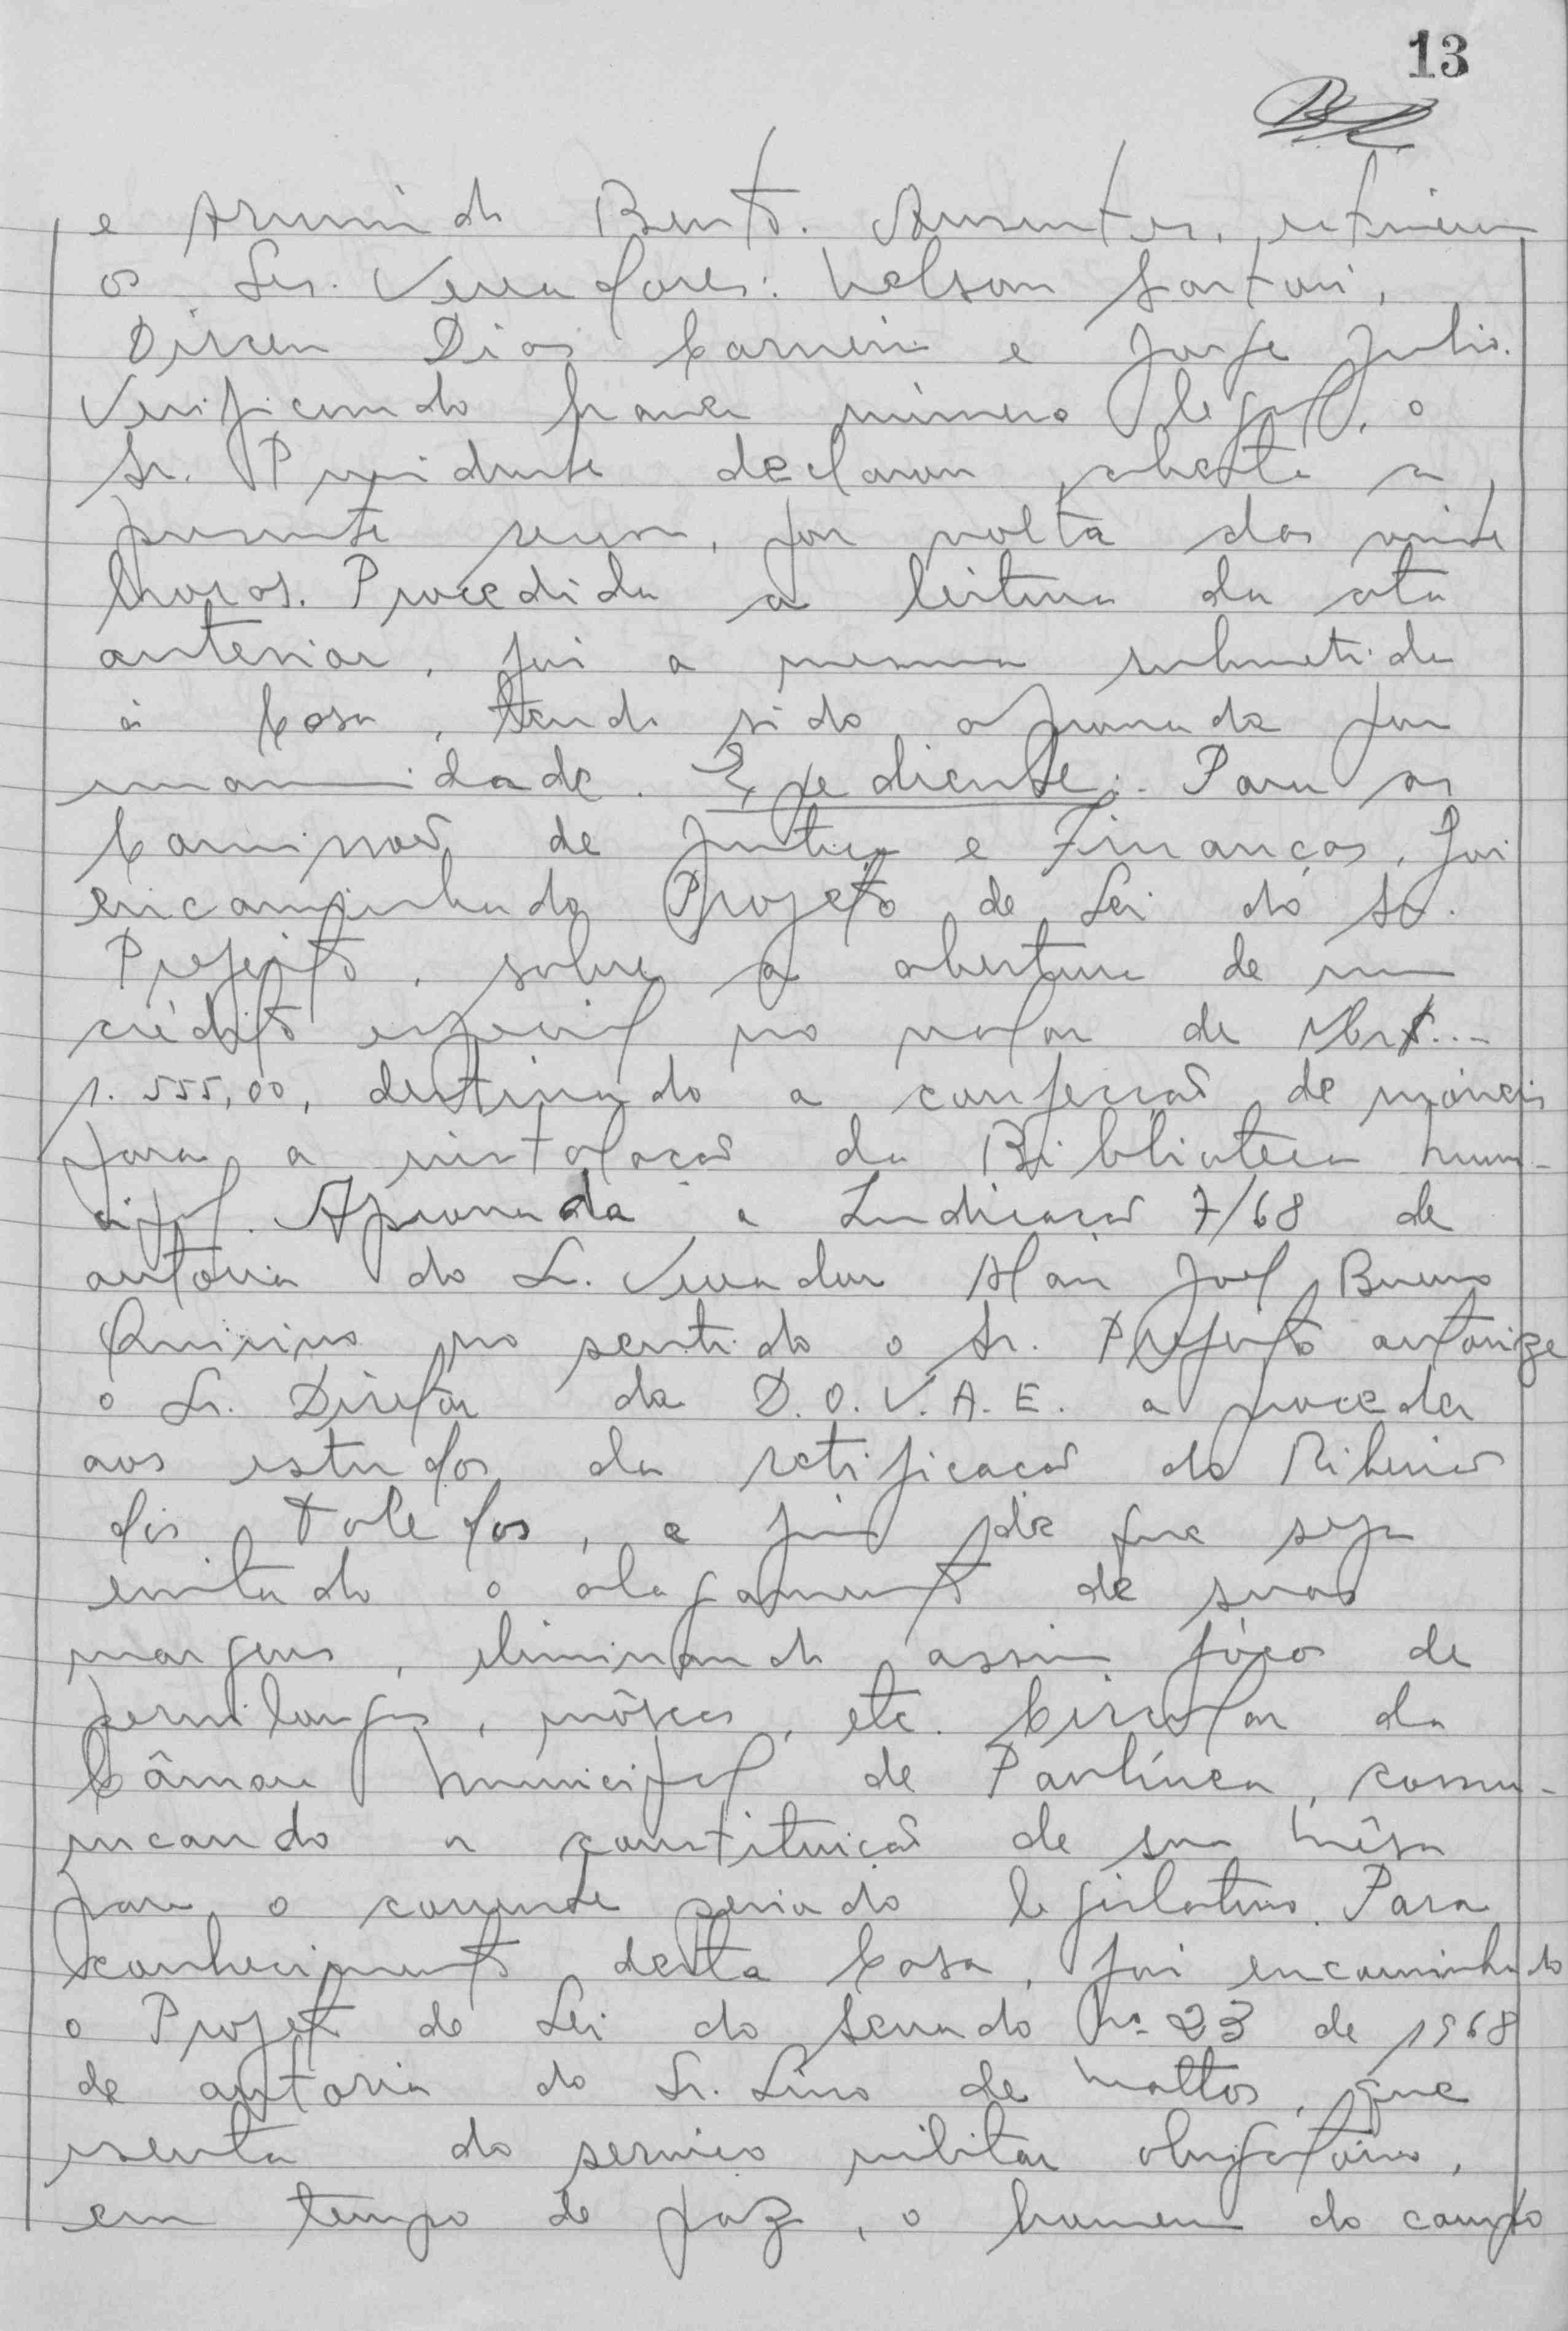 13
e Armindo Bento. Ausentes, estiveram
os Srs. Vereadores: Nelson Sartori,
Dirceu Dias Carneiro e Jorge Julio.
Verificando haver número legal, o
Sr. Presidente declarou aberta a
presente reunião, por volta das vinte
horas. Procedida a leitura da ata
anterior, foi a mesma submetida
à Casa, tendo sido aprovada por
unanimidade. Expediente: Para as
Comissões de Justiça e Finanças, foi
encaminhado Projeto de Lei do Sr.
Prefeito, sobre a abertura de um
crédito especial no valor de NCr$...
1.555,00, destinado a confecção de móveis
para a instalação da Biblioteca Muni-
cipal. Aprovada a Indicação 7/68 de
autoria do Sr. Vereador Alair Joel Bueno
Quirino no sentido o Sr. Prefeito autorize
o Sr. Diretor da D.O.V.A.E. a proceder
aos estudos da retificação do Ribeirão
dos Toledos, a fim de que seja
evitado o alagamento de suas
margens, eliminando assim fócos de
pernilongos, môscas, etc. Circular da
Câmara Municipal de Paulínea, comu-
nicando a constituição de sua Mêsa
para o corrente periodo legislativo. Para
conhecimento desta Casa, foi encaminhado
o Projeto de Lei do Senado Nº 23 de 1968
de autoria do Sr. Lino de Mattos, que
isenta do serviço militar obrigatório,
em tempo de paz, o homem do campo